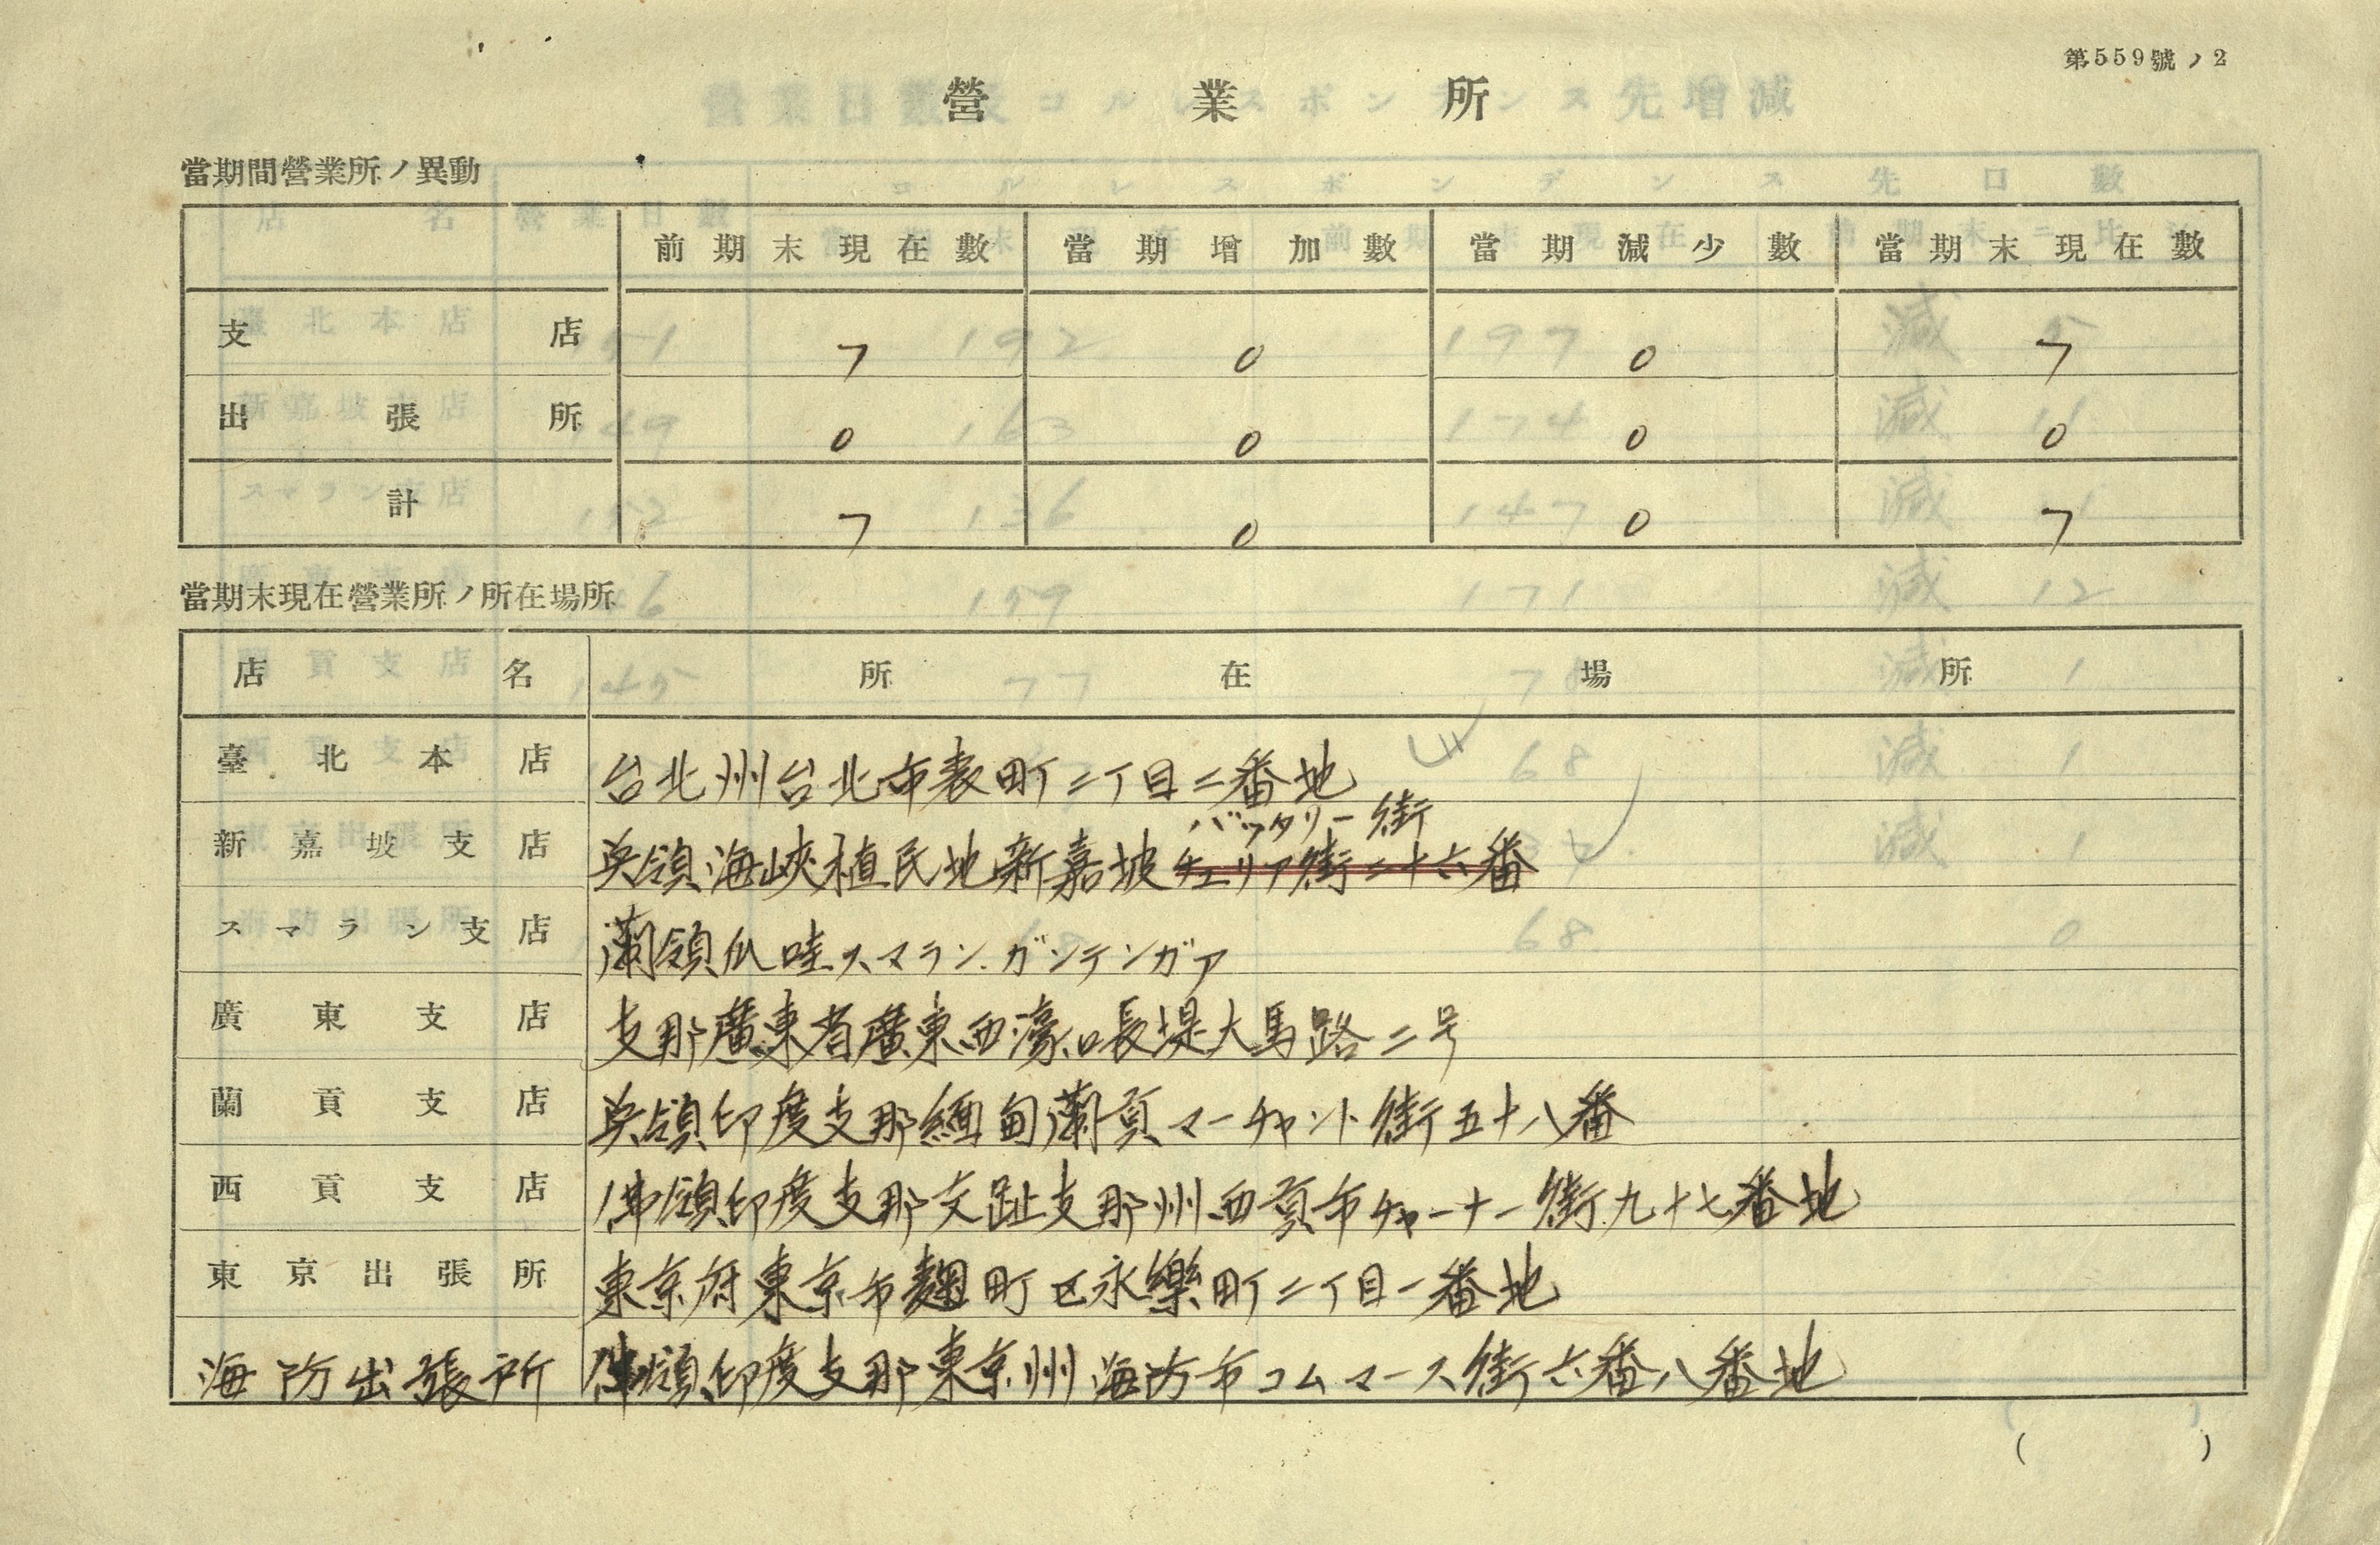 第559號ノ2
營業所
當期間營業所ノ異動
前期末現在數 當期增加數 當期減少數 當期末現在數
支店 7 0 0 7
出張所 0 0 0 0
計 7 0 0 7
當期末現在營業所ノ所在場所
店名 所在場所
臺北本店 台北州台北市表町二丁目二番地
バッタリー街
新嘉坡支店 英領海峽植民地新嘉坡チェリア街二十六番
スマラン支店 蘭領爪哇スマラン.ガンテンガア
廣東支店 支那廣東省廣東西濠口長堤大馬路二号
蘭貢支店 英領印度支那緬甸蘭貢マーチャント街五十八番
西貢支店 佛領印度支那交趾支那州西貢市チャーナー街九十七番地
東京出張所 東京府東京市麹町区永樂町二丁目一番地
海防出張所 佛領印度支那東京州海防市コムマース街六番八番地
( )